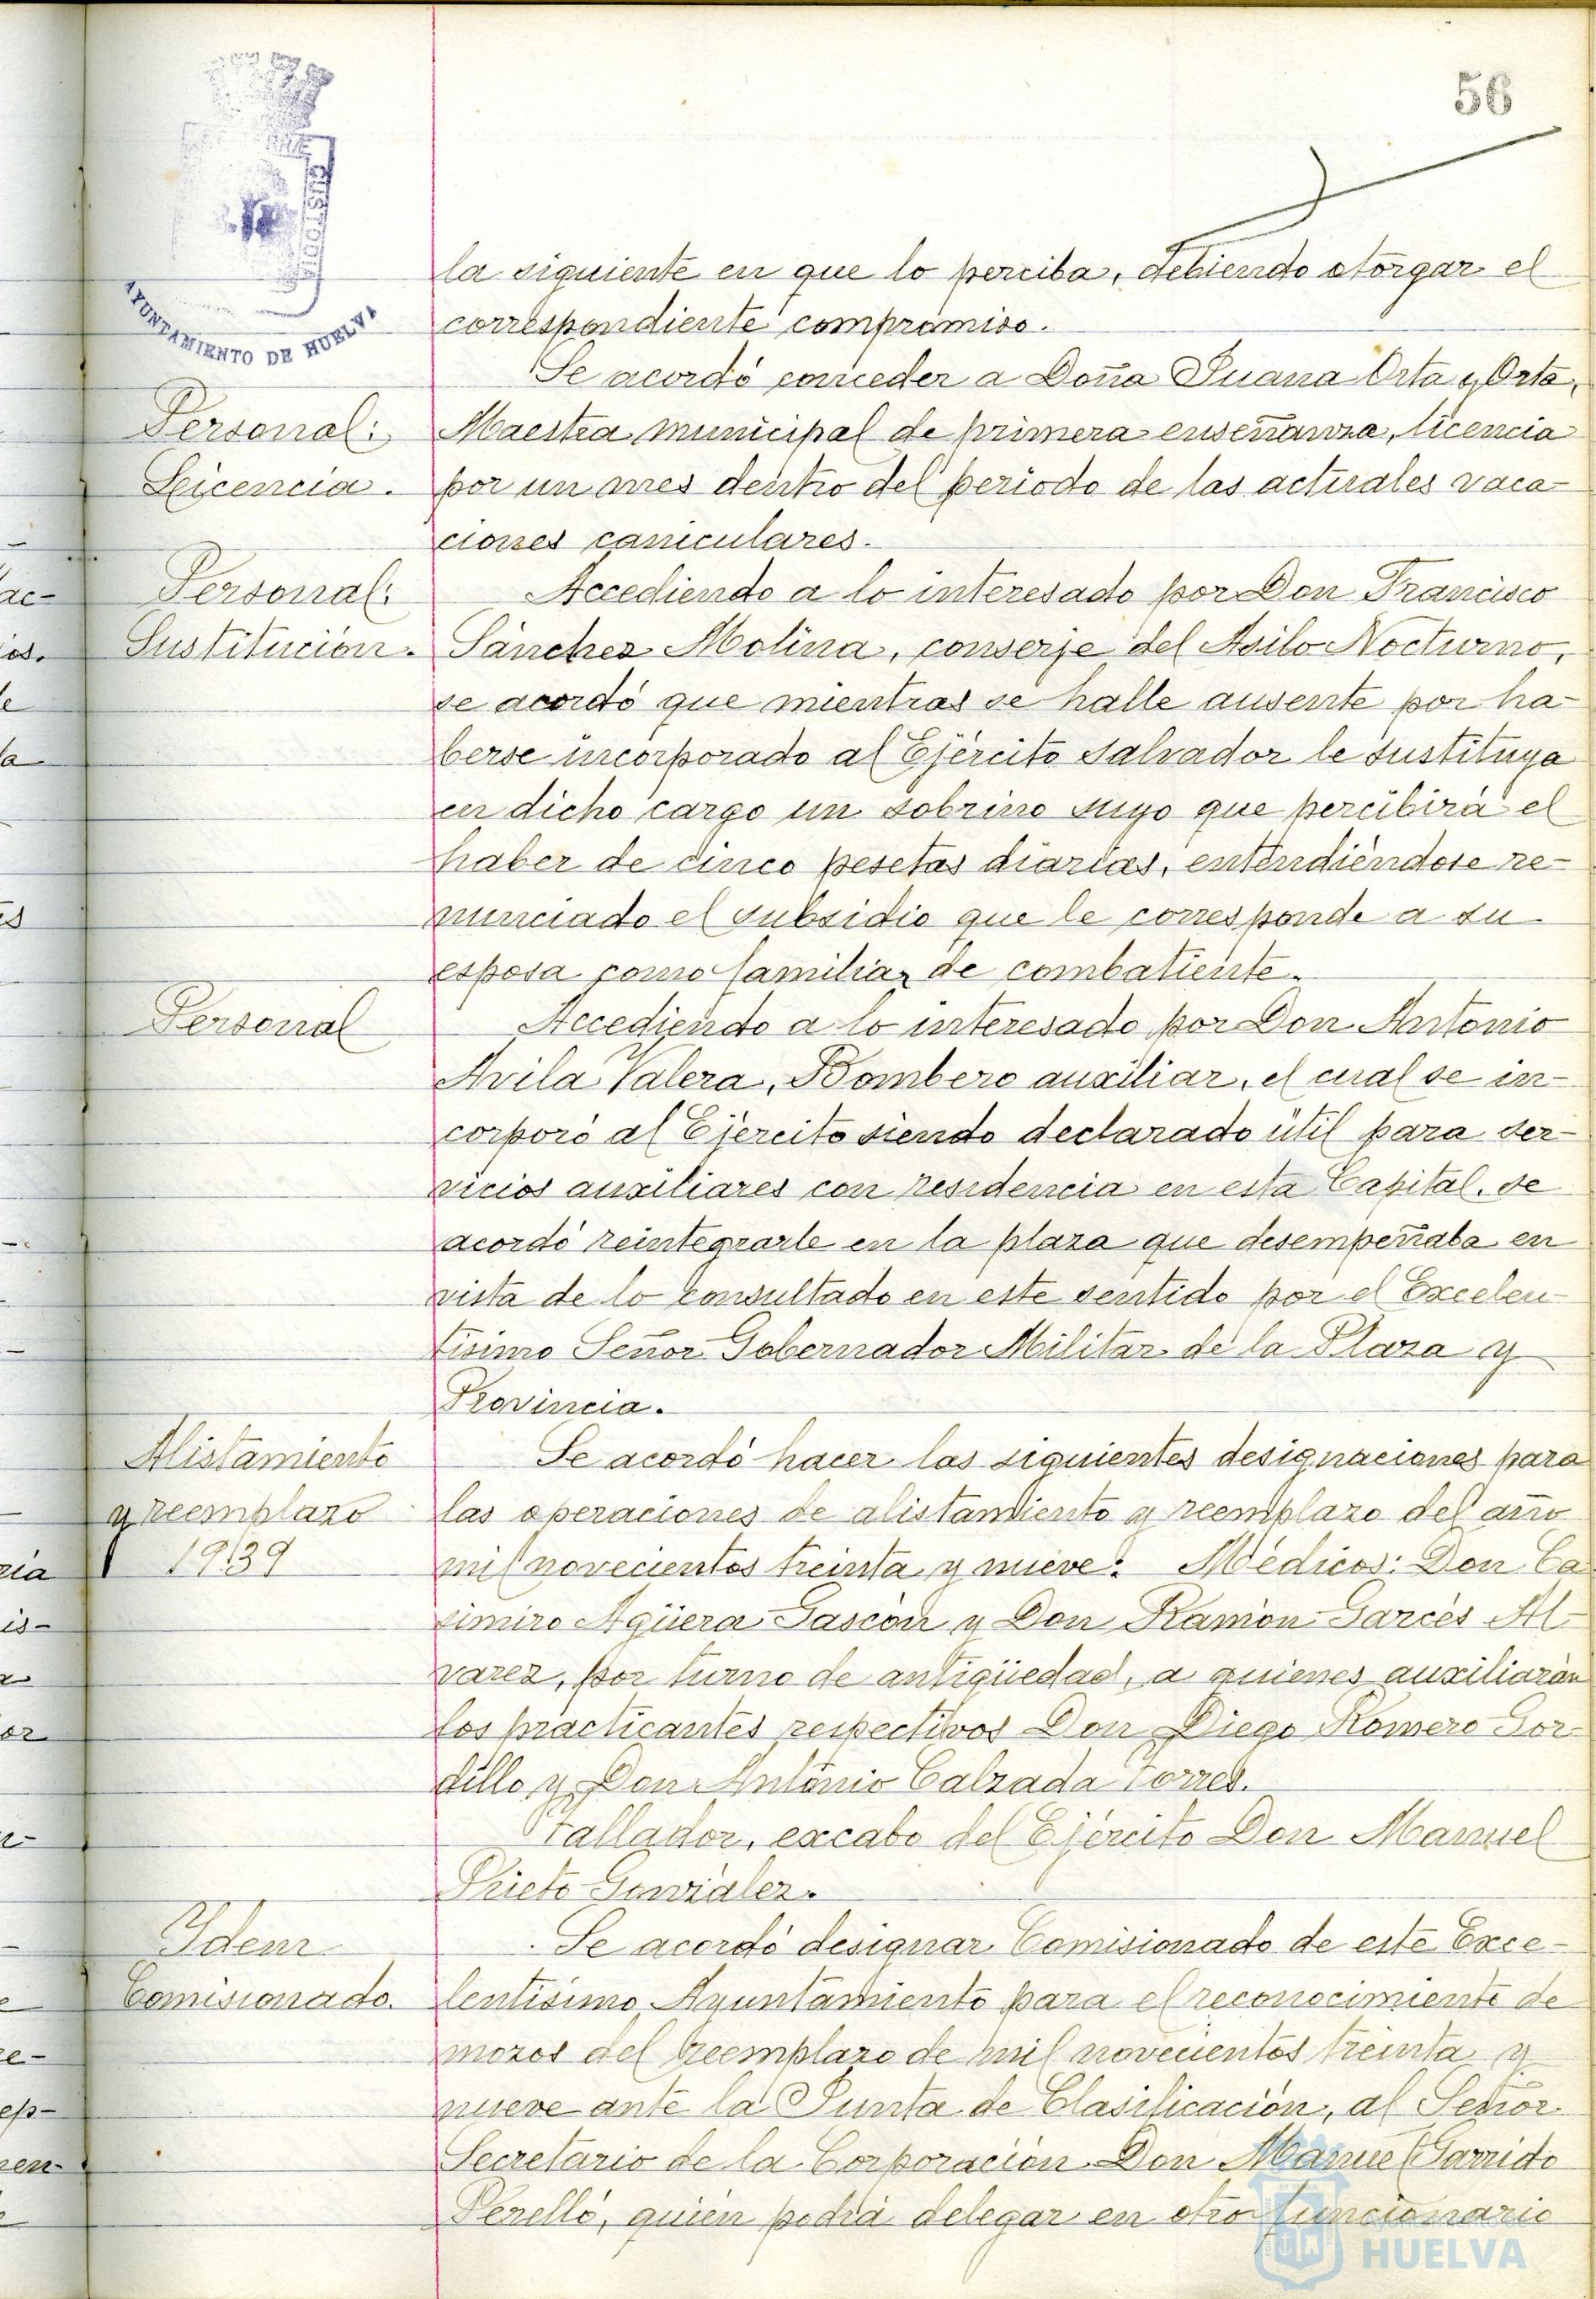 56
CUSTODIA
AYUNTAMIENTO DE HUELVA
la siguiente en que lo perciba, debiendo otorgar el
correspondiente compromiso.
Personal:
Licencia.
Se acordó conceder a Doña Juana Orta y Orta,
Maestra municipal de primera enseñanza, licencia
por un mes dentro del periodo de las actuales vaca-
ciones caniculares.
Personal:
Sustitución.
Accediendo a lo interesado por Don Francisco
Sánchez Molina, conserje del Asilo Nocturno,
se acordó que mientras se halle ausente por ha-
berse incorporado al Ejército salvador le sustituya
en dicho cargo un sobrino suyo que percibirá el
haber de cinco pesetas diarias, entendiéndose re-
nunciado el subsidio que le corresponde a su
esposa como familiar de combatiente.
Personal
Accediendo a lo interesado por Don Antonio
Avila Valera, Bombero auxiliar, el cual se in-
corporó al Ejército siendo declarado útil para ser-
vicios auxiliares con residencia en esta Capital, se
acordó reintegrarle en la plaza que desempeñaba en
vista de lo consultado en este sentido por el Excelen
tísimo Señor Gobernador Militar de la Plaza y
Provincia.
Alistamiento
y reemplazo
1939
Se acordó hacer las siguientes designaciones para
las operaciones de alistamiento y reemplazo del año
mil novecientos treinta y nueve: Médicos: Don Ca
simiro Agüera Gascón y Don Ramón Garcés Al-
varez, por turno de antigüedad, a quienes auxiliarán
los practicantes respectivos Don Diego Romero Gor-
dillo y Don Antonio Calzada Torres.
Tallador, excabo del Ejército Don Manuel
Prieto González.
Idem
Comisionado.
Se acordó designar Comisionado de este Exce-
lentísimo Ayuntamiento para el reconocimiento de
mozos del reemplazo de mil novecientos treinta y
nueve ante la Junta de Clasificación, al Señor
Secretario de la Corporación Don Manuel Garrido
Perelló, quien podrá delegar en otro funcionario
HUELVA